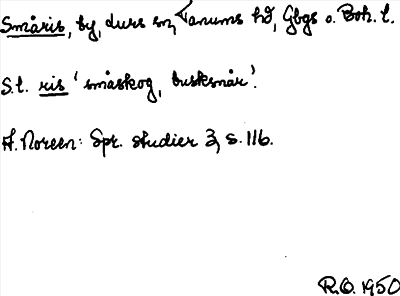 Småris, by, Lurs sn, Tanums hd, Gbgs o. Boh. l.
S.t. ris 'småskog, busksnår'.
A. Noreen: Spr. studier 3, s. 116.
R.O. 1950